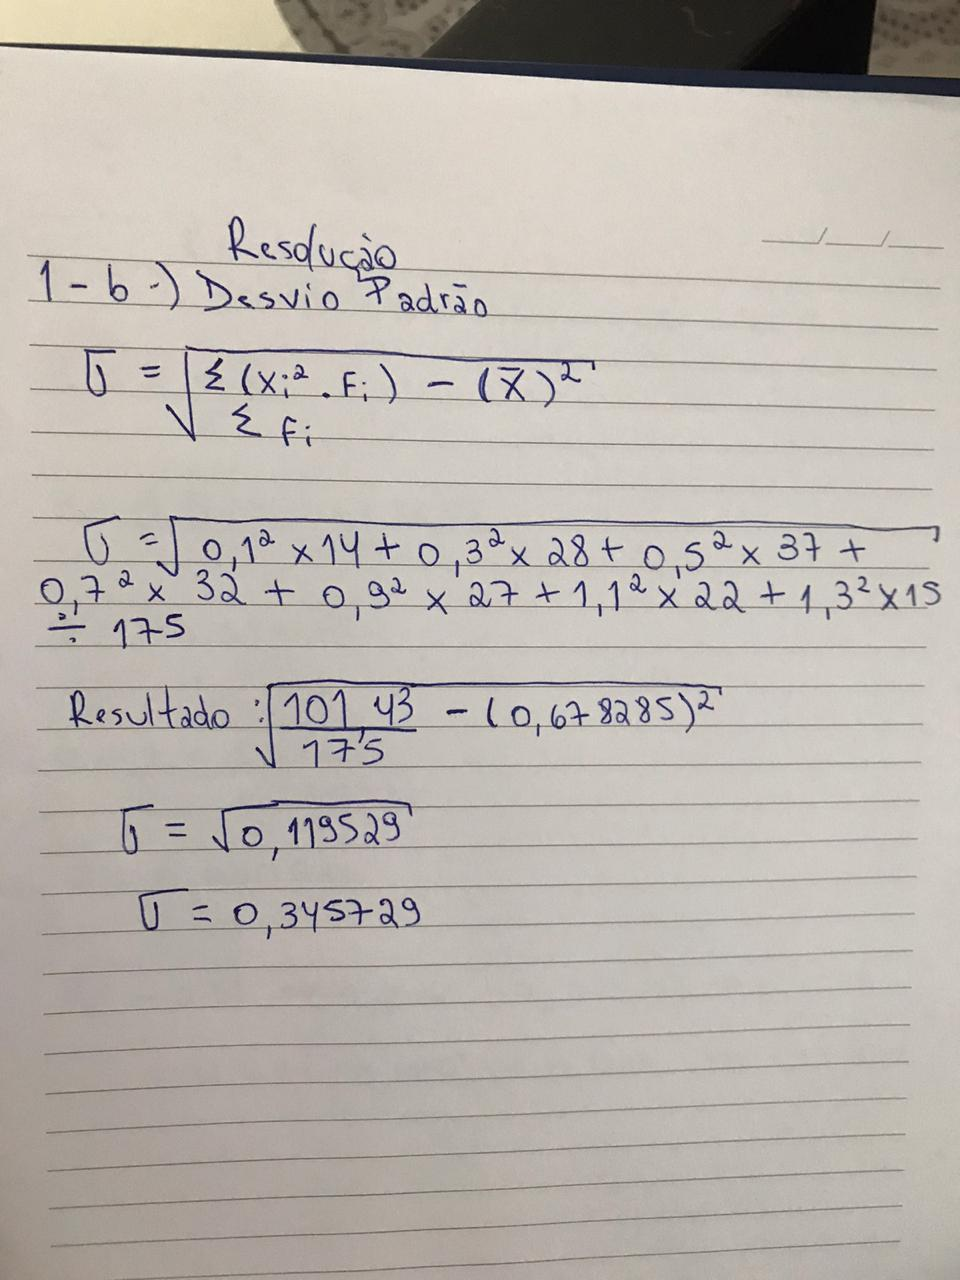 Resolução
__/__/__
1-b-) Desvio Padrão
σ = √ Σ(xi² . Fi) - (x̄)²
Σ Fi
σ = √ 0,1² x 14 + 0,3² x 28 + 0,5² x 37 +
0,7² x 32 + 0,9² x 27 + 1,1² x 22 + 1,3² x 15
÷ 175
Resultado : √ 101,43 - (0,678285)²
175
σ = √0,119529
σ = 0,345729